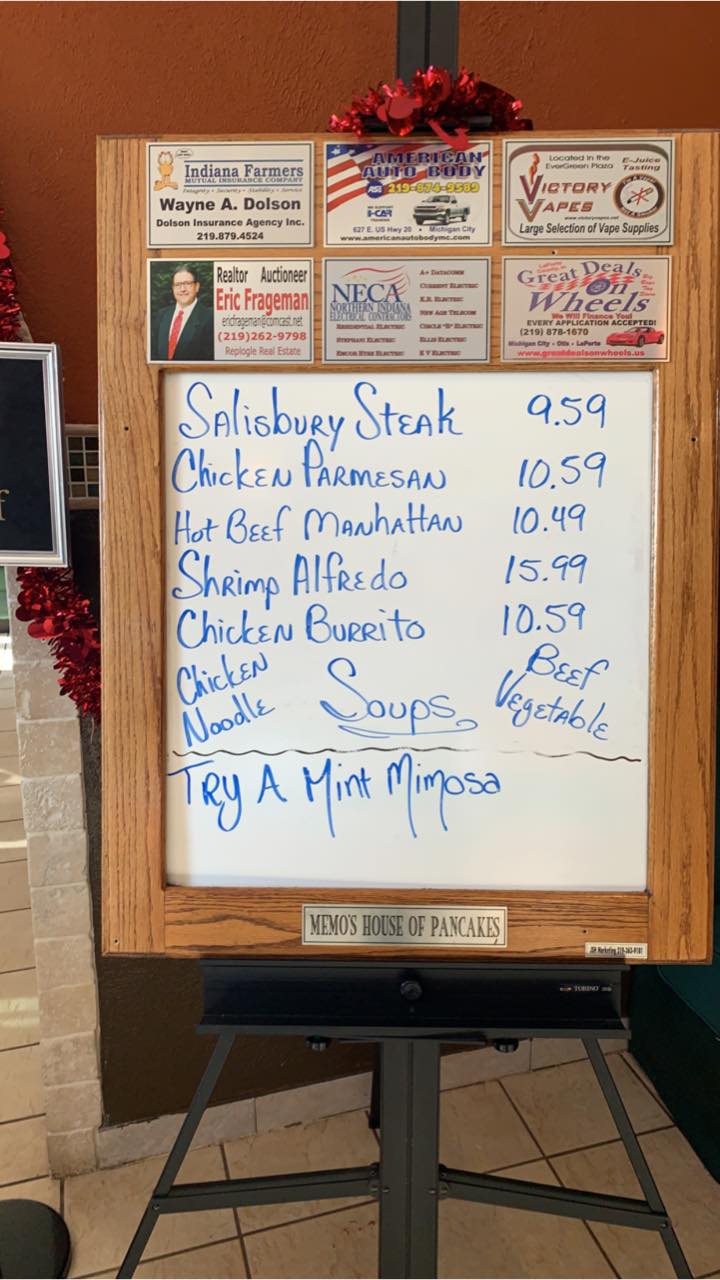 Indiana Farmers
MUTUAL INSURANCE COMPANY
Integrity • Security • Stability • Service
Wayne A. Dolson
Dolson Insurance Agency Inc.
219.879.4524
AMERICAN
AUTO BODY
219-874-9589
I-CAR
627 E. US Hwy 20 • Michigan City
www.americanautobodymc.com
Located in the
EverGreen Plaza
E-Juice
Tasting
VICTORY
VAPES
www.victoryvapes.net
Large Selection of Vape Supplies
Realtor Auctioneer
Eric Frageman
ericfrageman@comcast.net
(219)262-9798
Replogle Real Estate
NECA
NORTHERN INDIANA
ELECTRICAL CONTRACTORS
A+ DATACOMM
CURRENT ELECTRIC
K.R. ELECTRIC
NEW AGE TELECOM
RESIDENTIAL ELECTRIC CIRCLE "B" ELECTRIC
STEPHANI ELECTRIC ELLIS ELECTRIC
EMCOR HYRE ELECTRIC K V ELECTRIC
Great Deals
on
Wheels
We Will Finance You!
EVERY APPLICATION ACCEPTED!
(219) 878-1670
Michigan City • Otis • LaPorte
www.greatdealsonwheels.us
f
Salisbury Steak 9.59
Chicken Parmesan 10.59
Hot Beef Manhattan 10.49
Shrimp Alfredo 15.99
Chicken Burrito 10.59
Chicken
Noodle
Soups
Beef
Vegetable
Try A Mint Mimosa
MEMO'S HOUSE OF PANCAKES
JSH Marketing 219-363-9181
TORINO